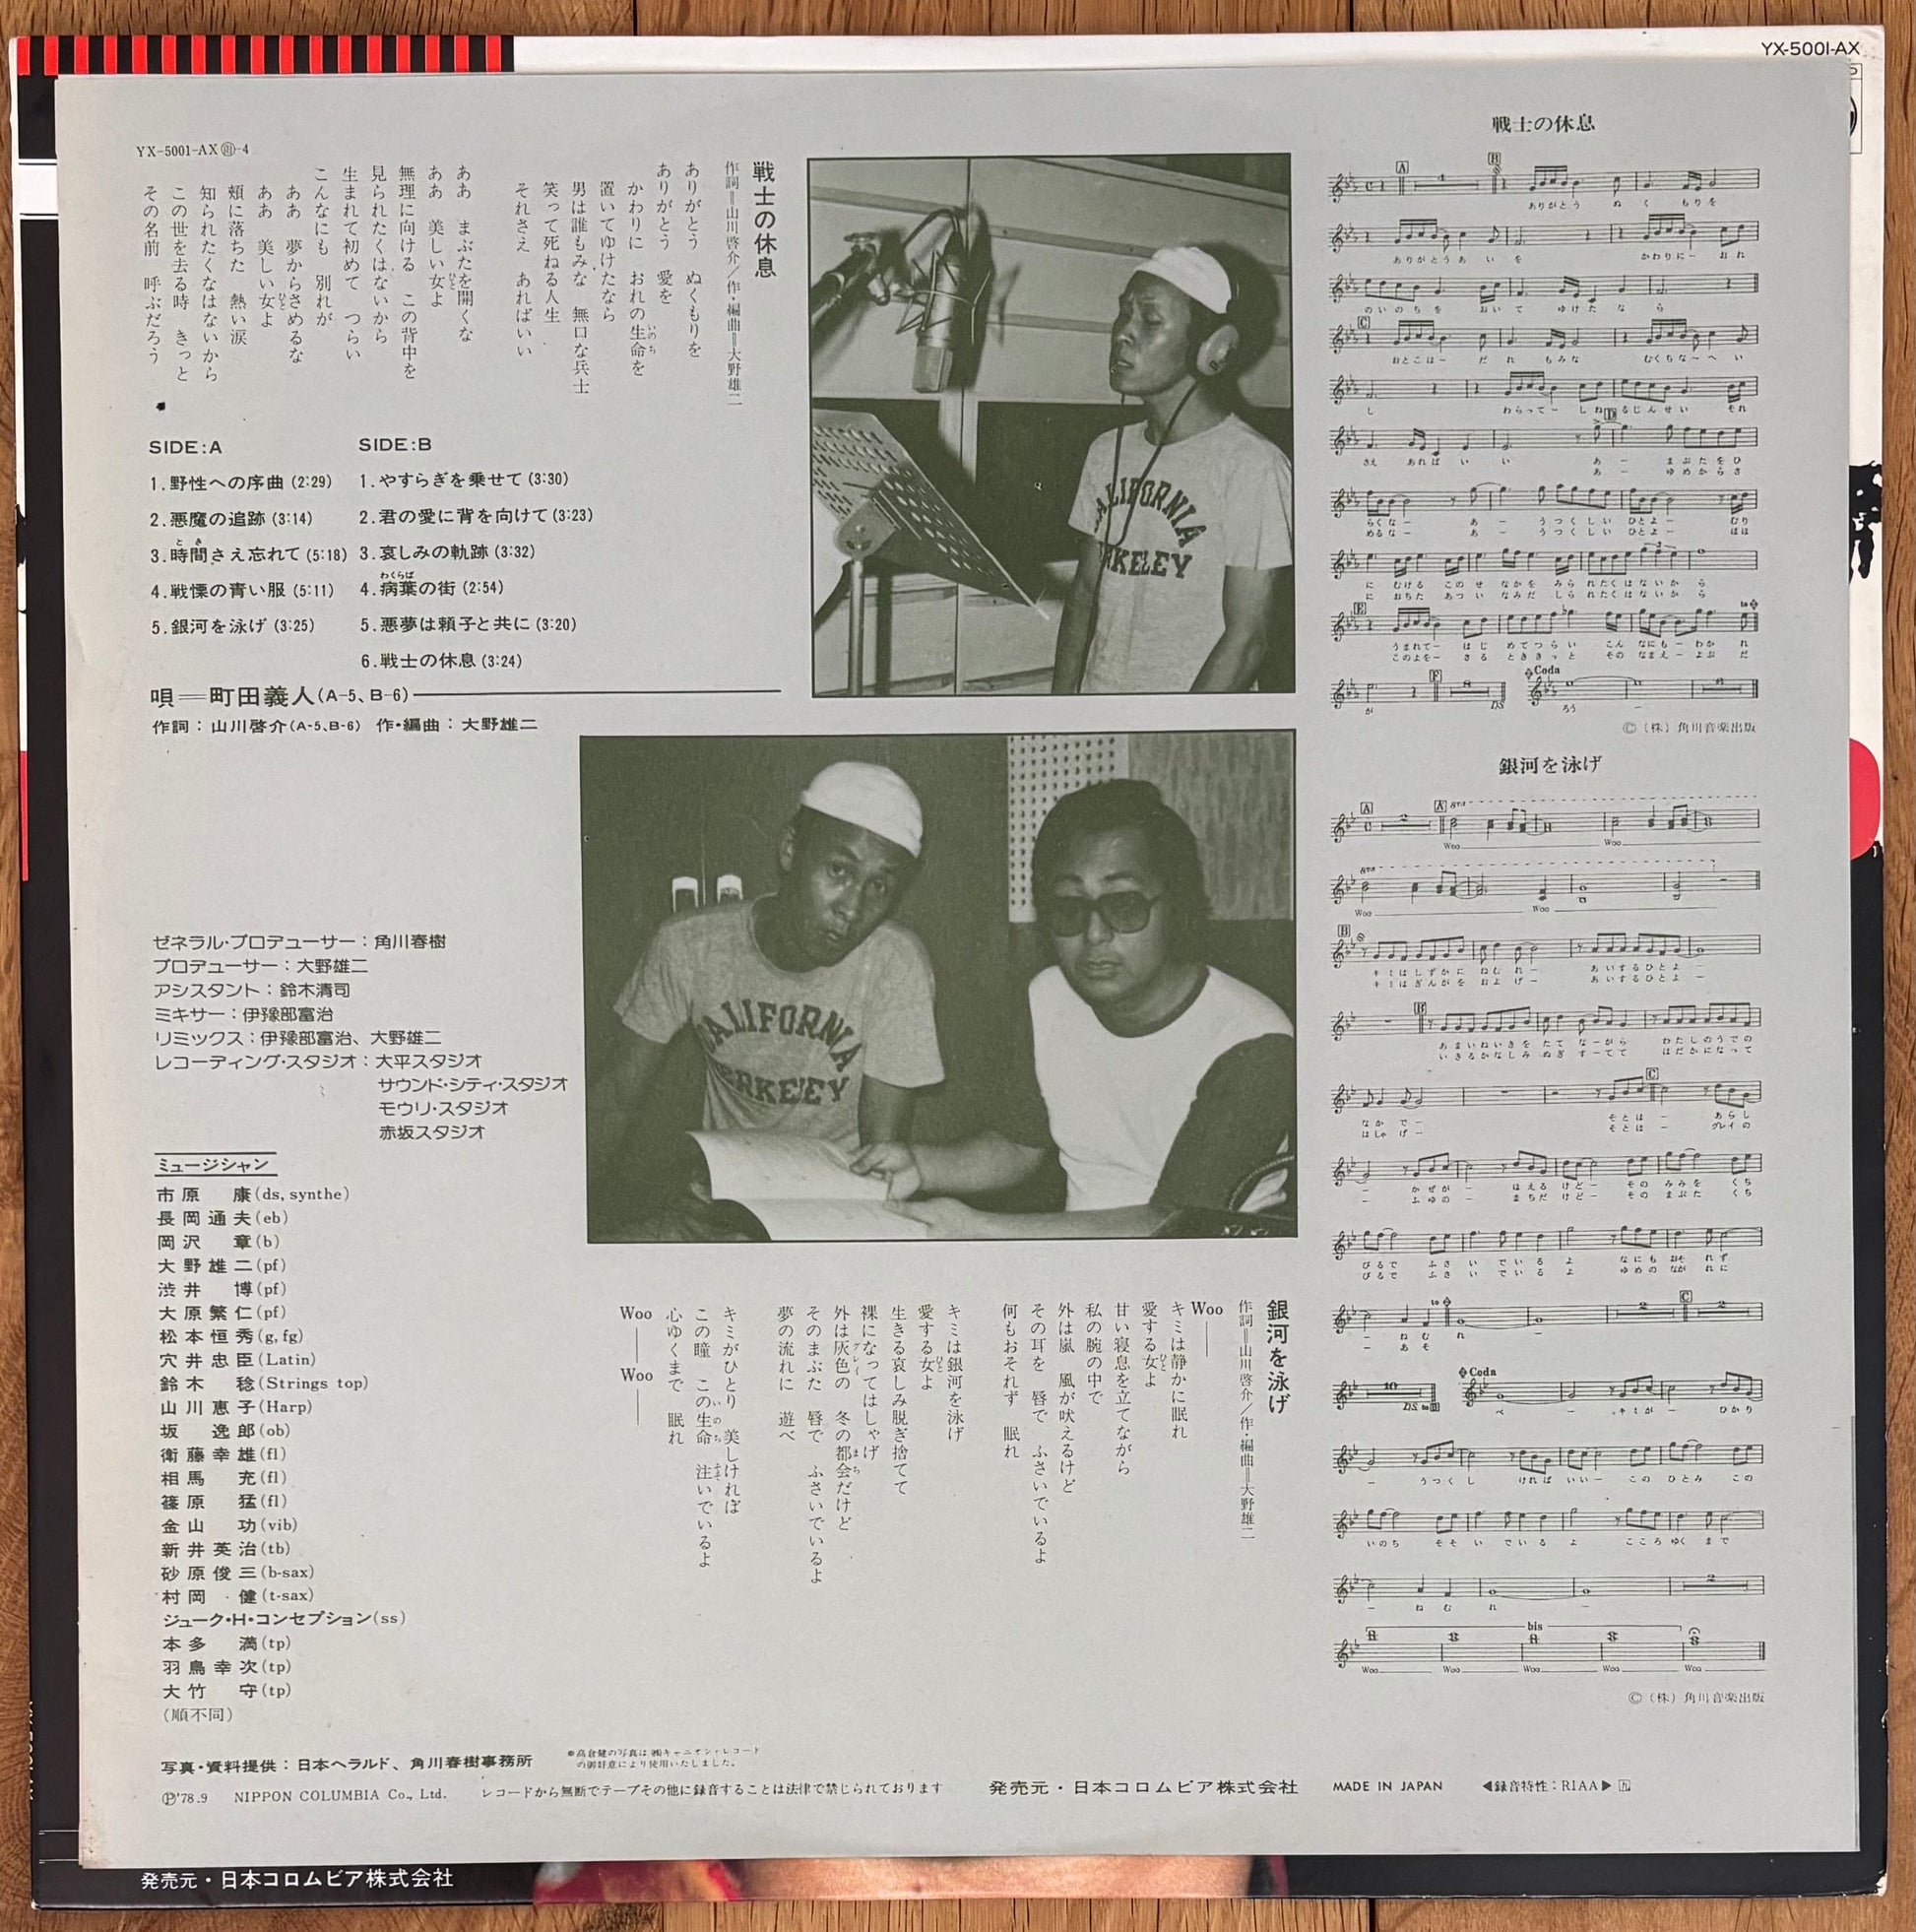 YX-5001-AX
YX-5001-AX-4
戦士の休息
作詞=山川啓介/作・編曲=大野雄二
ありがとう ぬくもりを
ありがとう 愛を
かわりに おれの生命を
置いてゆけたなら
男は誰もみな 無口な兵士
笑って死ねる人生
それさえ あればいい
ああ まぶたを開くな
ああ 美しい女よ
無理に向ける この背中を
見られたくはないから
生まれて初めて つらい
こんなにも 別れが
ああ 夢からさめるな
ああ 美しい女よ
頬に落ちた 熱い涙
知られたくなはないから
この世を去る時 きっと
その名前 呼ぶだろう
SIDE:A
1.野性への序曲(2:29)
2.悪魔の追跡(3:14)
3.時間さえ忘れて(5:18)
4.戦慄の青い服(5:11)
5.銀河を泳げ(3:25)
SIDE:B
1.やすらぎを乗せて(3:30)
2.君の愛に背を向けて(3:23)
3.哀しみの軌跡(3:32)
4.病葉の街(2:54)
5.悪夢は頼子と共に(3:20)
6.戦士の休息(3:24)
唄=町田義人(A-5、B-6)
作詞:山川啓介(A-5、B-6) 作・編曲:大野雄二
CALIFORNIA
BERKELEY
CALIFORNIA
BERKELEY
ゼネラル・プロデューサー:角川春樹
プロデューサー:大野雄二
アシスタント:鈴木清司
ミキサー:伊豫部富治
リミックス:伊豫部富治、大野雄二
レコーディング・スタジオ:大平スタジオ
サウンド・シティ・スタジオ
モウリ・スタジオ
赤坂スタジオ
ミュージシャン
市原 康(ds, synthe)
長岡通夫(eb)
岡沢 章(b)
大野雄二(pf)
渋井 博(pf)
大原繁仁(pf)
松本恒秀(g, fg)
穴井忠臣(Latin)
鈴木 稔(Strings top)
山川恵子(Harp)
坂 逸郎(ob)
衛藤幸雄(fl)
相馬 充(fl)
篠原 猛(fl)
金山 功(vib)
新井英治(tb)
砂原俊三(b-sax)
村岡 健(t-sax)
ジューク・H・コンセプション(ss)
本多 満(tp)
羽鳥幸次(tp)
大竹 守(tp)
(順不同)
銀河を泳げ
作詞=山川啓介/作・編曲=大野雄二
Woo
キミは静かに眠れ
愛する女よ
甘い寝息を立てながら
私の腕の中で
外は嵐 風が吠えるけど
その耳を 唇で ふさいでいるよ
何もおそれず 眠れ
キミは銀河を泳げ
愛する女よ
生きる哀しみ脱ぎ捨てて
裸になってはしゃげ
外は灰色の 冬の都会だけど
そのまぶた 唇で ふさいでいるよ
夢の流れに 遊べ
キミがひとり 美しければ
この瞳 この生命 注いでいるよ
心ゆくまで 眠れ
Woo Woo
戦士の休息
ありがとう ぬくもりを
ありがとうあいを かわりにー おれ
のいのちを おいて ゆけたなら
おとこはー だれ もみな むくちなーへい
し わらってー しねるじんせい それ
さえ あれば いい あー まぶたをひ
あー ゆめからさ
らくなー あー うつくしい ひとよー むり
めるなー あー うつくしい ひとよー ほほ
に むける このせ なかを みら れたくはないから
に おちた あつい なみだ しら れたくはないから
うまれてー はじ めてつらい こん なにもー わか れ
このよをー さる とききっと その なまえー よぶ だ
が Coda ろう
D.S.
©(株)角川音楽出版
銀河を泳げ
Woo Woo
Woo Woo
キミはしずかに ねむれー あいするひとよー
キミはぎんがを およげー あいするひとよー
あまいねいきを たて なーがら わたしのうでの
いきるかなしみ ぬぎ すーてて はだかになって
なか でー そとはー あらし
はしゃ げー そとはー グレイの
ー かぜがー ほえる けどー その みみを くち
ー ふゆのー まちだ けどー その まぶた くち
びるで ふさ い でいる よ なにも おそ れず
びるで ふさ い でいる よ ゆめの なが れに
ー ねむ れ ー
ー あそ
Coda べ ー キミがー ひかり
ー うつくし ければ いいー この ひとみ この
いのち そそ い でいる よ こころ ゆく まで
ー ねむ れ ー
bis
Woo Woo Woo Woo Woo
©(株)角川音楽出版
写真・資料提供:日本ヘラルド、角川春樹事務所
●高倉健の写真は㈱キャニオン・レコード
の御好意により使用いたしました。
Ⓟ'78.9 NIPPON COLUMBIA Co., Ltd. レコードから無断でテープその他に録音することは法律で禁じられております 発売元・日本コロムビア株式会社 MADE IN JAPAN ◀録音特性:RIAA▶
発売元・日本コロムビア株式会社